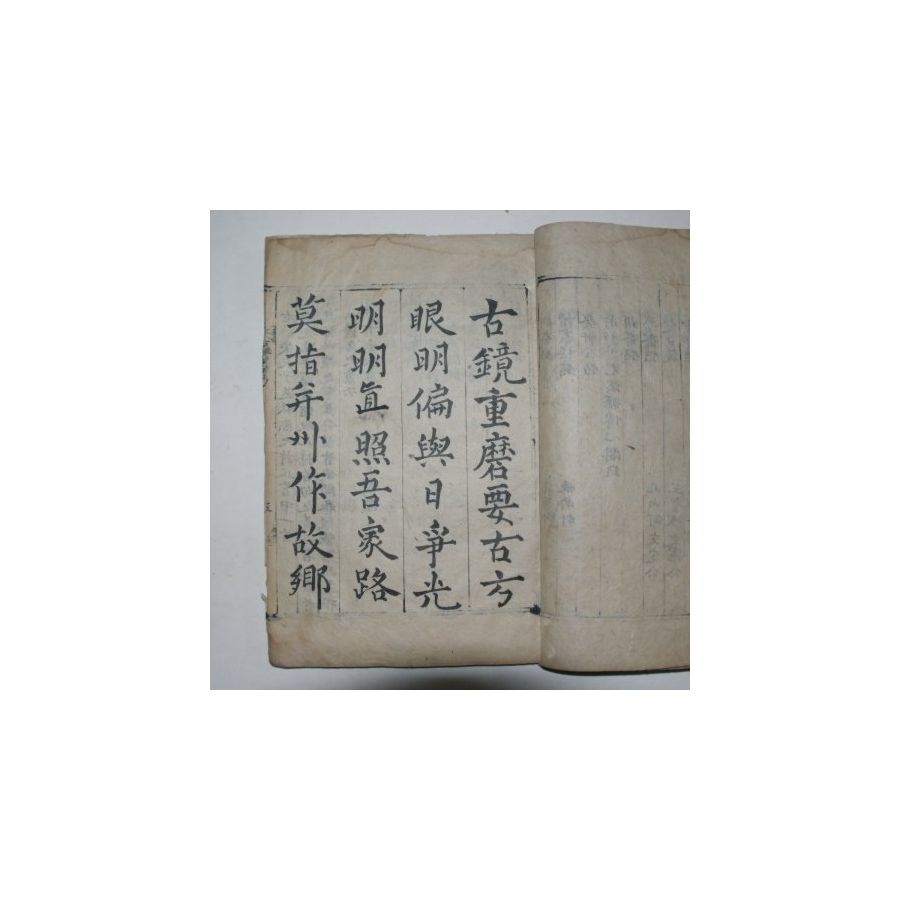 古鏡重磨要古方
眼明偏與日爭光
明明眞照吾家路
莫指幷州作故鄉